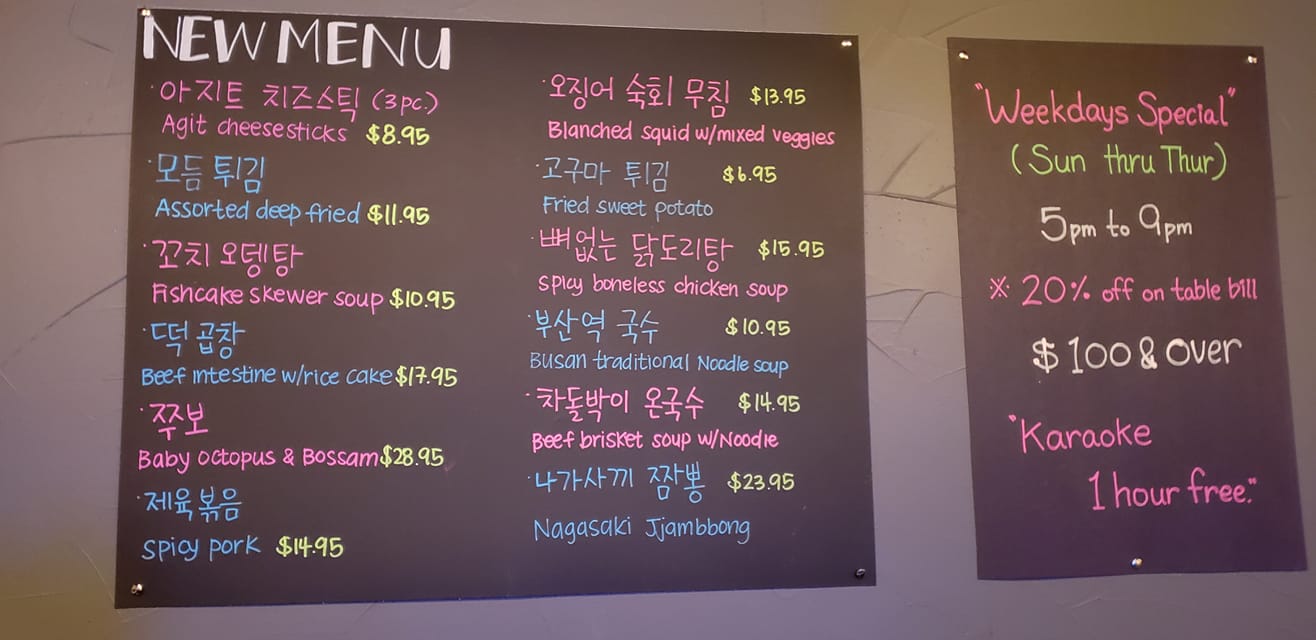 NEW MENU
· 아지트 치즈스틱 (3pc.)
Agit cheesesticks $8.95
· 모듬 튀김
Assorted deep fried $11.95
· 꼬치 오뎅탕
Fishcake skewer soup $10.95
· 떡 곱창
Beef intestine w/rice cake $17.95
· 쭈보
Baby octopus & Bossam $28.95
· 제육볶음
spicy pork $14.95
· 오징어 숙회 무침 $13.95
Blanched squid w/mixed veggies
· 고구마 튀김 $6.95
Fried sweet potato
· 뼈없는 닭도리탕 $15.95
spicy boneless chicken soup
· 부산역 국수 $10.95
Busan traditional Noodle soup
· 차돌박이 온국수 $14.95
Beef brisket soup w/Noodle
· 나가사끼 짬뽕 $23.95
Nagasaki Jjambbong
"Weekdays Special"
(Sun thru Thur)
5pm to 9pm
※ 20% off on table bill
$100 & over
"Karaoke
1 hour free."